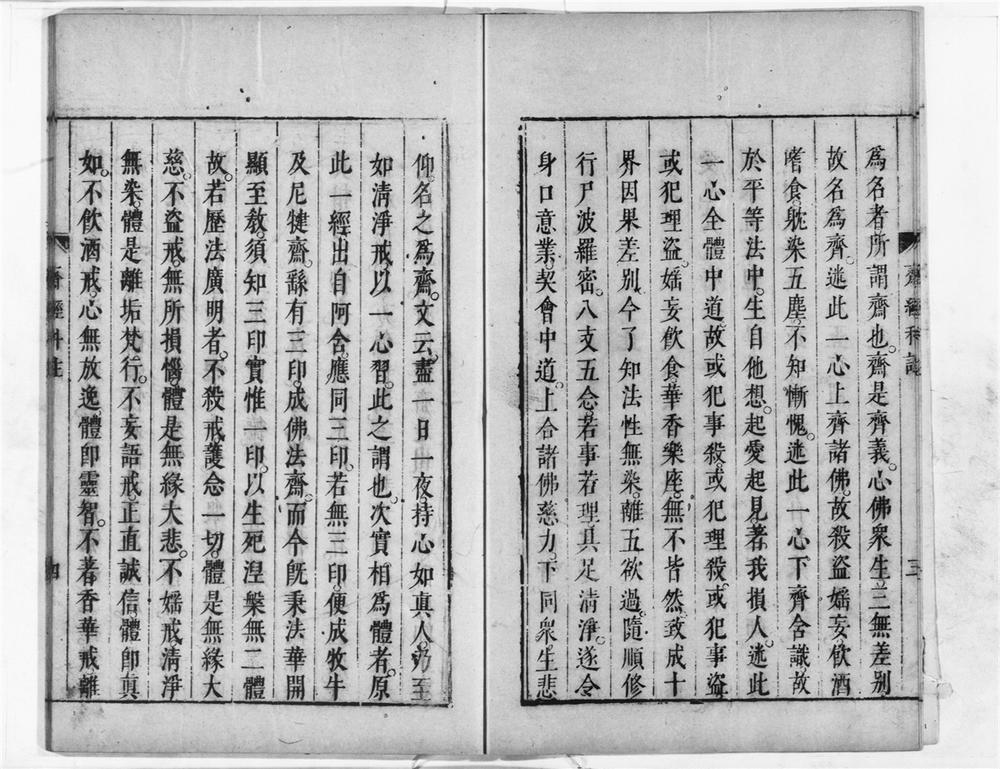 為名者所謂齊也。齊是齊義。心佛衆生三無差別
故名為齊。迷此一心上齊諸佛。故殺盜婬妄飲酒
嗜食。躭染五塵。不知慚愧。迷此一心下齊含識。故
於平等法中。生自他想。起愛起見。著我損人。迷此
一心全體中道。故或犯事殺。或犯理殺。或犯事盜
或犯理盜。婬妄飲食華香樂座。無不皆然。致成十
界因果差別。今了知法性無染。離五欲過。隨順修
行尸波羅密。八支五念。若事若理。具足清淨。遂令
身口意業。契會中道。上合諸佛慈力。下同衆生悲
齋經科註
三
仰。名之為齋。文云。盡一日一夜。持心如真人。乃至
如清淨戒。以一心習。此之謂也。次實相為體者。原
此一經出自阿含。應同三印。若無三印。便成牧牛
及尼犍齋。繇有三印。成佛法齋。而今旣秉法華開
顯至教。須知三印實惟一印。以生死涅槃無二體
故。若歷法廣明者。不殺戒。護念一切。體是無緣大
慈。不盜戒。無所損惱。體是無緣大悲。不婬戒。清淨
無染。體是離垢梵行。不妄語戒。正直誠信。體卽真
如。不飲酒戒。心無放逸。體卽靈智。不著香華戒。離
齋經科註
四